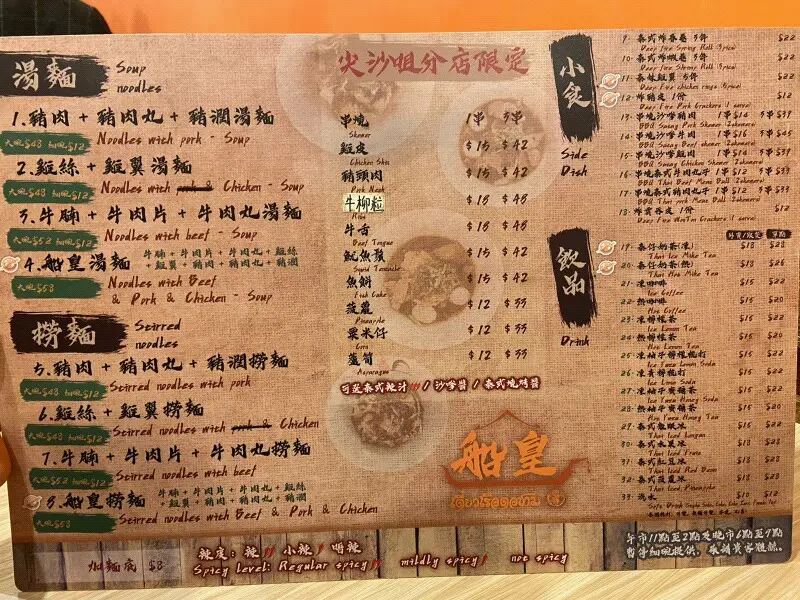 湯麵
Soup
noodles
1.豬肉 + 豬肉丸 + 豬潤湯麵
大碗$48 細碗$12
Noodles with pork - Soup
2.雞絲 + 雞翼湯麵
大碗$48 細碗$12
Noodles with pork & Chicken - Soup
3.牛腩 + 牛肉片 + 牛肉丸湯麵
大碗$52 細碗$12
Noodles with beef - Soup
4.船皇湯麵
牛腩 + 牛肉片 + 牛肉丸 + 雞絲
+ 雞翼 + 豬肉 + 豬肉丸 + 豬潤
大碗$58
Noodles with Beef
& Pork & Chicken - Soup
撈麵
Stirred
noodles
5.豬肉 + 豬肉丸 + 豬潤撈麵
大碗$48 細碗$12
Stirred noodles with pork
6.雞絲 + 雞翼撈麵
大碗$48 細碗$12
Stirred noodles with pork & Chicken
7.牛腩 + 牛肉片 + 牛肉丸撈麵
大碗$52 細碗$12
Stirred noodles with beef
8.船皇撈麵
牛腩 + 牛肉片 + 牛肉丸 + 雞絲
+ 雞翼 + 豬肉 + 豬肉丸 + 豬潤
大碗$58
Stirred noodles with Beef & Pork & Chicken
加麵底 $8
辣度: 辣 小辣 唔辣
Spicy level: Regular spicy mildly spicy not spicy
尖沙咀分店限定
串燒 1串 3串
Skewer
雞皮 $15 $42
Chicken Skin
豬頸肉 $15 $42
Pork Neck
牛柳粒 $18 $48
Ribs
牛舌 $18 $48
Beef Tongue
魷魚鬚 $15 $42
Squid Tentacle
魚餅 $15 $42
Fish Cake
菠蘿 $12 $33
Pineapple
粟米仔 $12 $33
Corn
蘆筍 $12 $33
Asparagus
可蘸泰式辣汁 / 沙嗲醬 / 泰式燒烤醬
船皇
小食
Side
Dish
9. 泰式炸春卷 3件 $22
Deep fire Spring Roll 3pics)
10. 泰式炸蝦卷 3件 $22
Deep fire Shrimp Roll 3pics)
11. 泰妹雞翼 5件 $22
Deep fire chicken rings 5pics)
12. 炸豬皮 1份 $12
Deep Fire Pork Crackers (1 serve)
13. 串燒沙嗲豬肉 1串$14 3串$39
BBQ Satay Pork Skewer
14. 串燒沙嗲牛肉 1串$16 3串$45
BBQ Satay Beef skewer
15. 串燒沙嗲雞肉 1串$14 3串$39
BBQ Satay Chicken Skewer
16. 串燒泰式牛肉丸子 1串$12 3串$33
BBQ Thai Beef Meat Ball
17. 串燒泰式豬肉丸子 1串$12 3串$33
BBQ Thai pork Meat Ball
18. 炸雲吞皮 1份 $12
Deep Fire WonTon Crackers (1 serve)
飲品
Drink
19. 泰仔奶茶(凍) $18 $25
Thai Ice Milk Tea
20. 泰仔奶茶(熱)
Thai Hot Milk Tea
21. 凍咖啡 $15 $22
Ice Coffee
22. 熱咖啡 $15 $20
Hot Coffee
23. 凍檸檬茶 $15 $22
Ice Lemon Tea
24. 熱檸檬茶 $15 $20
Hot Lemon Tea
25. 凍柚子檸檬梳打 $15 $22
26. 凍青檸梳打 $15 $22
Ice Lime Soda
27. 凍柚子蜜糖茶 $15 $22
28. 熱柚子蜜糖茶 $15 $20
29. 泰式龍眼冰 $18 $28
Thai Iced Longan
30. 泰式水果冰 $18 $28
Thai Iced Fruit
31. 泰式紅豆冰 $18 $28
Thai Iced Red Bean
32. 泰式菠蘿冰 $18 $28
Thai Iced Pineapple
33. 汽水 $10 $12
Soft Drink
午市11點至2點及晚市6點至9點
暫停細碗提供,敬請貴客體諒..